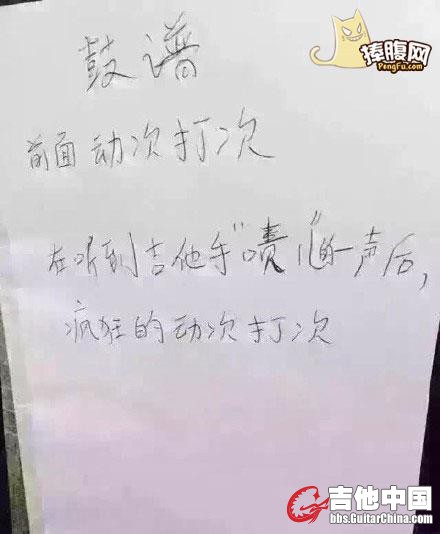 捧腹网
PengFu.com
鼓谱
前面动次打次
在听到吉他手"啧儿"的一声后,
疯狂的动次打次
吉他中国
bbs.GuitarChina.com